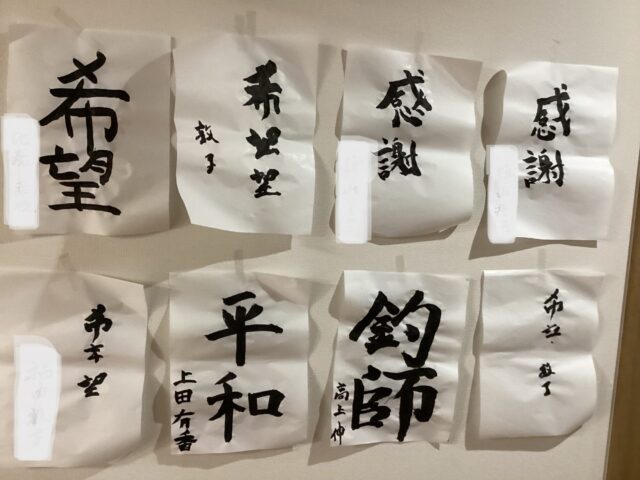 希望
希望
敦子
感謝
感謝
希望
平和
上田有香
釣師
高上伸
希望
敦子